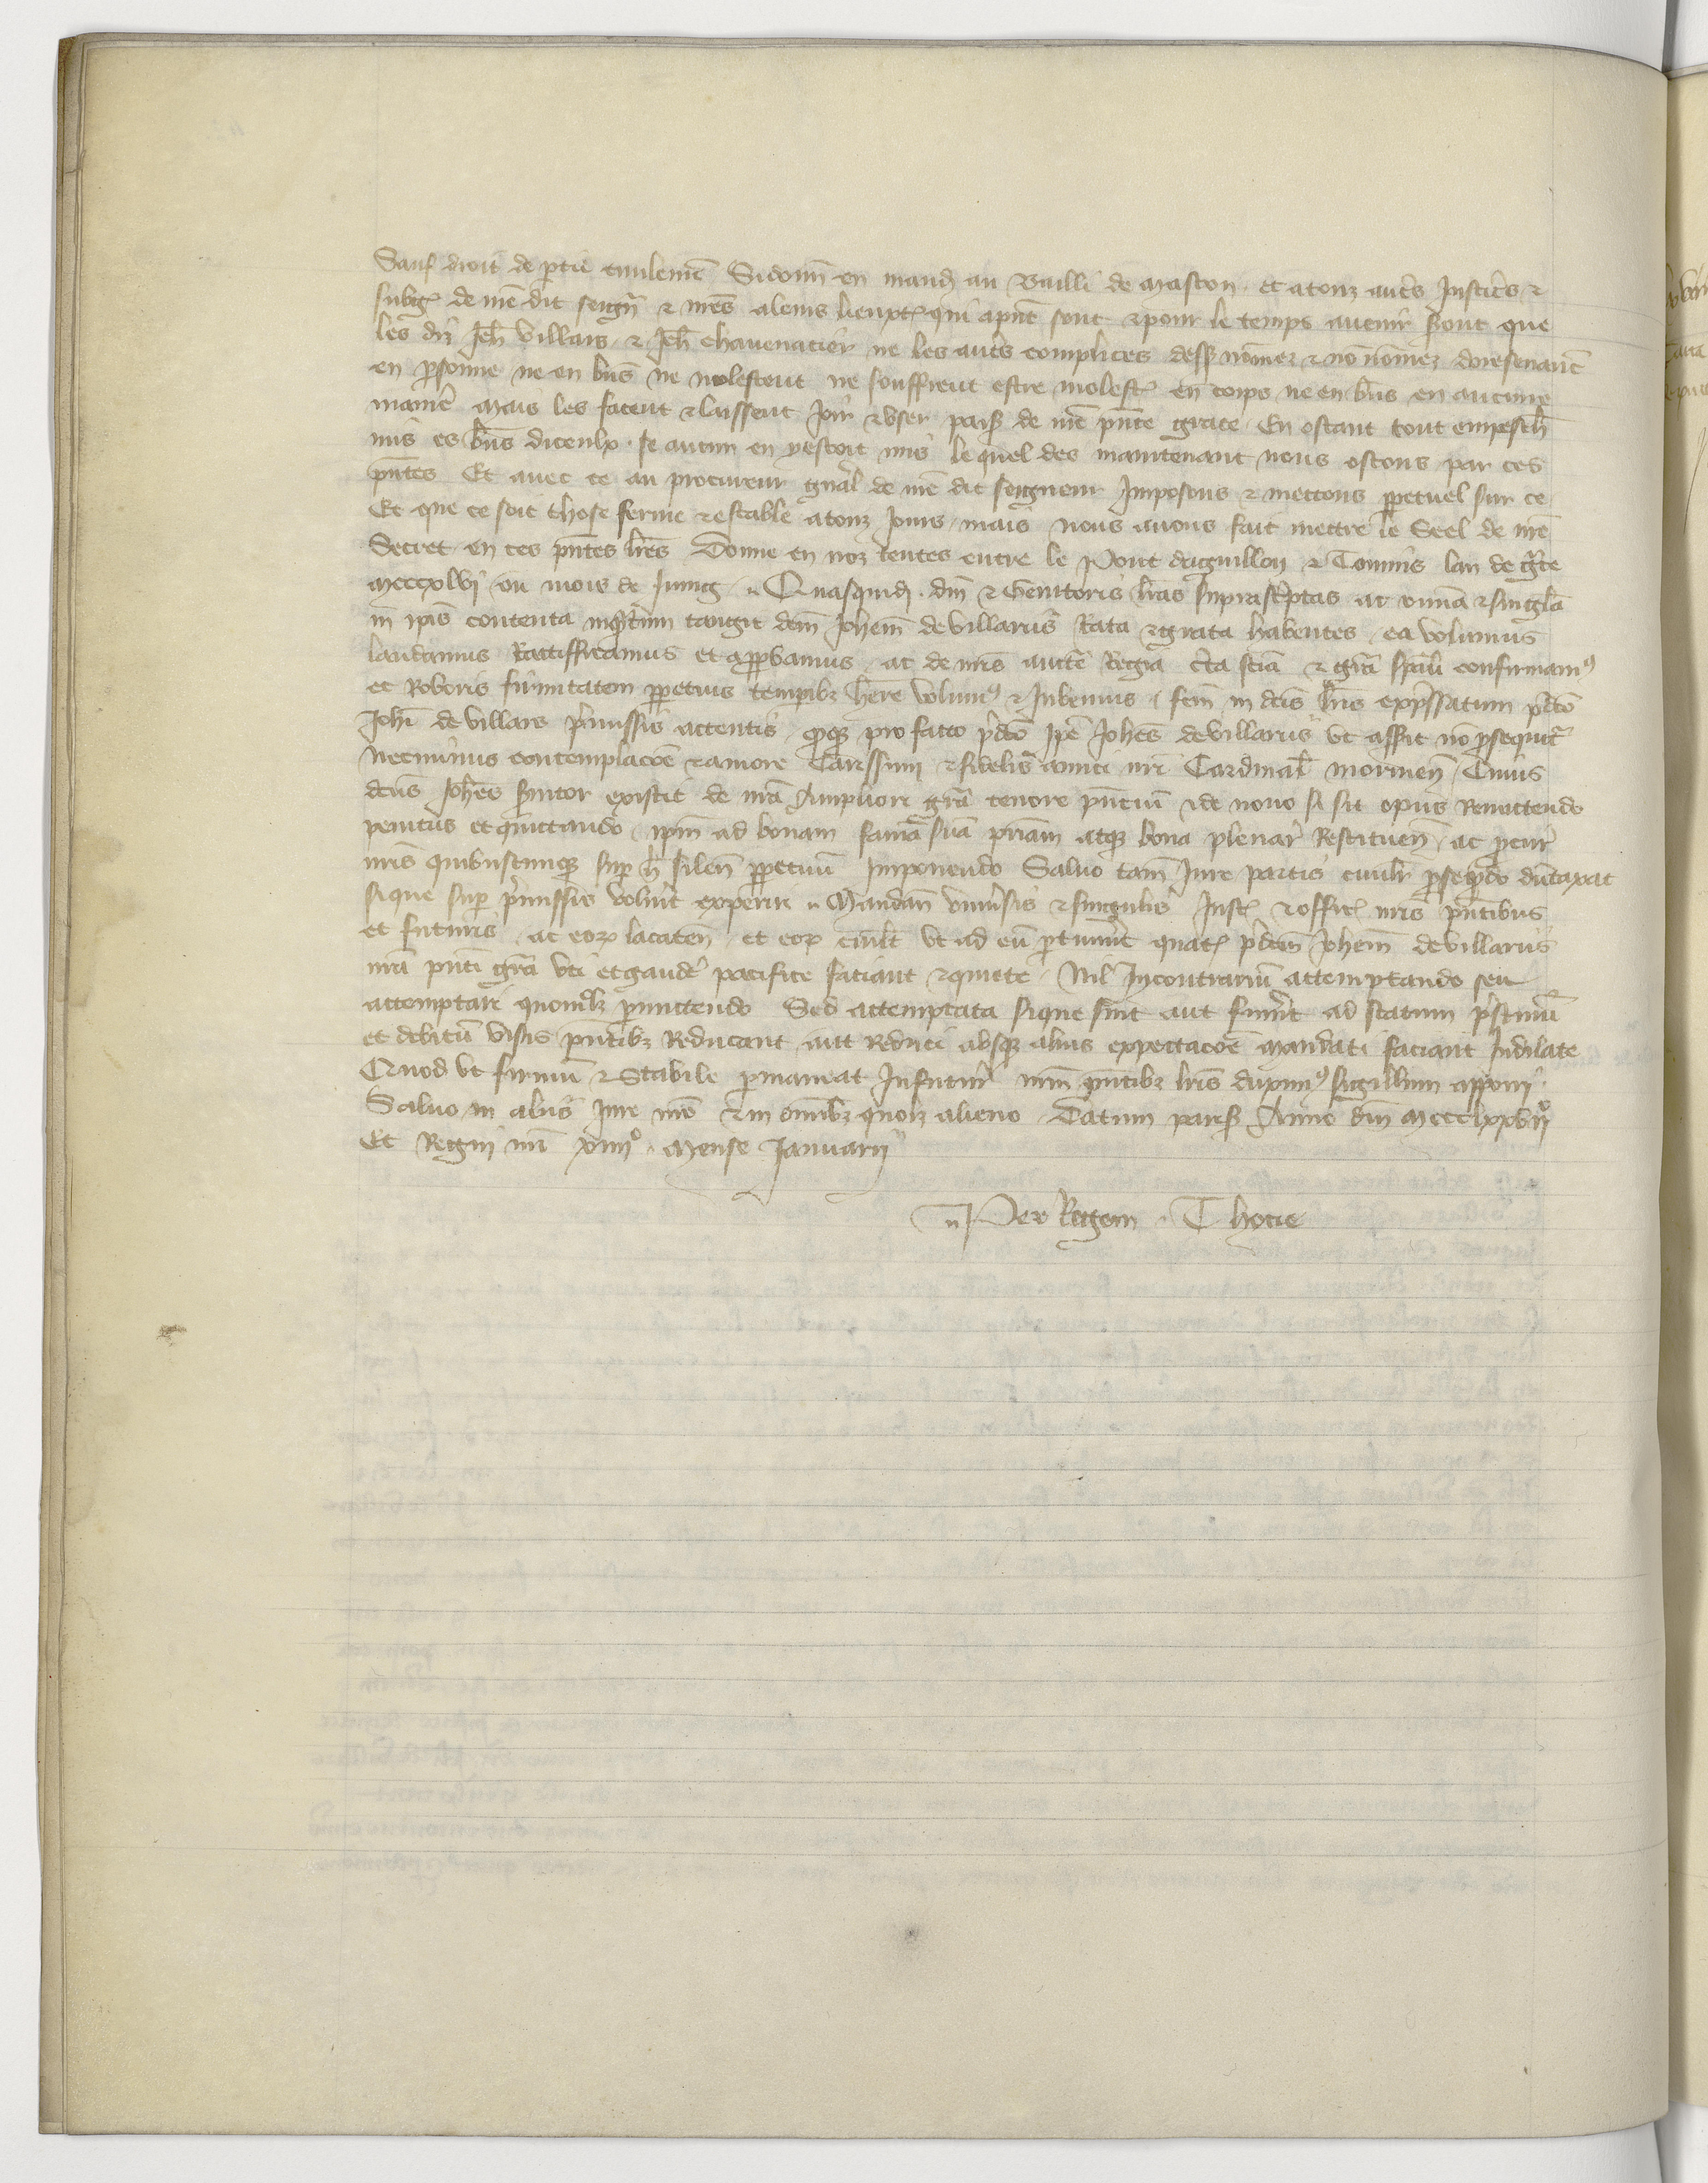 Sauf droit de ptie civilemẽt Si donñ en mand au Bailli de Mascon et a touz aut̃s Justic̃s &
subgꝭ de mõ dit seign̄ & nr̃es a leurs lieuxtꝭ qui a pñt sont & pour le temps avenir s̃ont que
les diz Jeh̃ Villars & Jeh̃ Chavenacier ne les aut̃s complices dessꝰ nõmez & nõ nõmez doresenavãt
en p̱sonne ne en biẽs ne molestent ne souffrent estre molestꝭ en corps ne en biẽs en aucune
manie᷑ Mais les facent & laissent joir & user pais de nr̃e pñte grace En ostant tout empesch̃
mis es biẽs diceulx se aucun en y estoit mis lequel des maintenant nous ostons par ces
pñtes Et avec ce au procureur gñal de mõ dit seigneur Imposons & mettons ꝑpetuel sur ce
Et que ce soit chose ferme & estable a touz jours mais nous avons fait mettre le Seel de nr̃e
Secret en ces pñtes lr̃es Donne en noz tentes entre le Pont daguillon & Tonnis lan de gr̃ce
mcccxlvi ou mois de Juing Quasquid dñi & Genitoris lr̃as suprasc̃ptas ac omĩa & singl̃a
in ip̃is contenta inq̃ntum tangit dc̃m Joh̃em de Villariis Rata & grata habentes ea volumus
laudamus Rattifficamus et app̃bamus ac de nr̃is aucte Regia c̃ta scĩa & gr̃a sp̃ali confirmamꝰ
et Roboris firmitatem ꝑpetuis tempibꝫ her̃e volumꝰ & Jubemus fcm̃ in dc̃is lr̃is exp̃ssatum p̃dc̃o
Joh̃i de Villars p̃missis attentis ꝓqꝫ pro facto p̃dc̃o ip̃e Joh̃es de Villariis ut assit nõ ꝓsequit᷑
Necminus contemplacoẽ & amore Carissimi & fidelis amici nr̃i Cardinal̃ Morineñ Cuius
dc̃us Joh̃es s̃vitor existit de nr̃a Ampliori gr̃a tenore pñtiũ & de novo si sit opus Remittendo
penitus et quittando ip̃m ad bonam famã suã pr̃iam atqꝫ bona plenar̃ Restitueñ ac ꝓcur̃
nr̃is quibuscumqꝫ sup h̃ sileñ ꝑpetuũ Imponendo Salvo tam̃ Jure partis civilr̃ ꝓsequẽdo dũtaxat
sique sup p̃missis volũit experiri Mandañ uniṽsis & singulis Justꝭ & officꝭ nr̃is pñtibus
et futuris ac eoꝝ locateñ et eoꝝ cuil̃t ut ad eũ ꝑtinũit quatꝭ p̃dc̃m Joh̃em de Villariis
nr̃a pñti gr̃a uti et gaude᷑ pacifice faciant & quiete Nil̃ Incontrariũ attemptando seu
attemptari quomõlꝫ p̱mittendo Sed attemptata sique sint aut fuũint ad statum p̃stinũ
et debitũ visis pñtibꝫ Reducant aut Reduci absqꝫ alius expectacoẽ Mandati faciant Indilate
Quod ut firmũ & Stabile p̱maneat Infutur̃ nr̃m pñtibꝫ lr̃is duximꝰ sigillum apponi
Salvo in aliis Jure nr̃o & in omĩbꝫ quolꝫ alieno Datum parisꝰ Anno dñi mccclxxvijº
Et Regni nr̃i xiiijº Mense Januarij
Per Regem Thocie